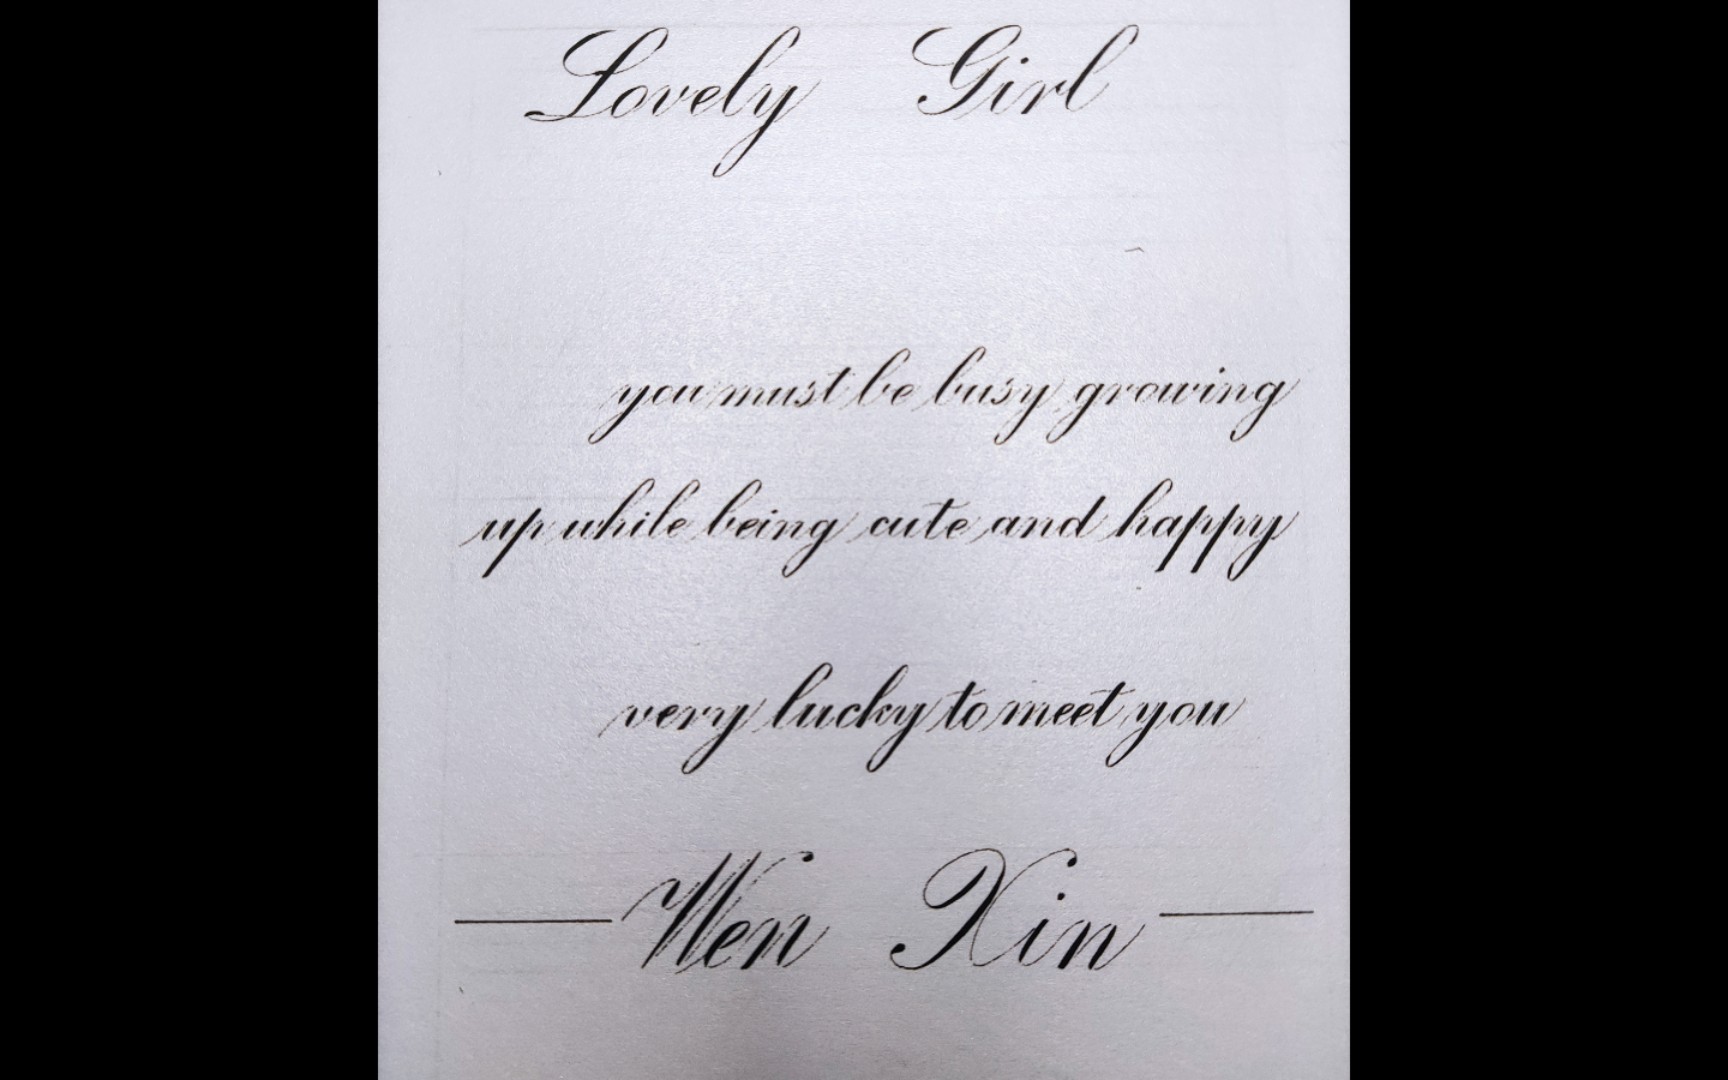 Lovely Girl
you must be busy growing
up while being cute and happy
very lucky to meet you
Wen Xin